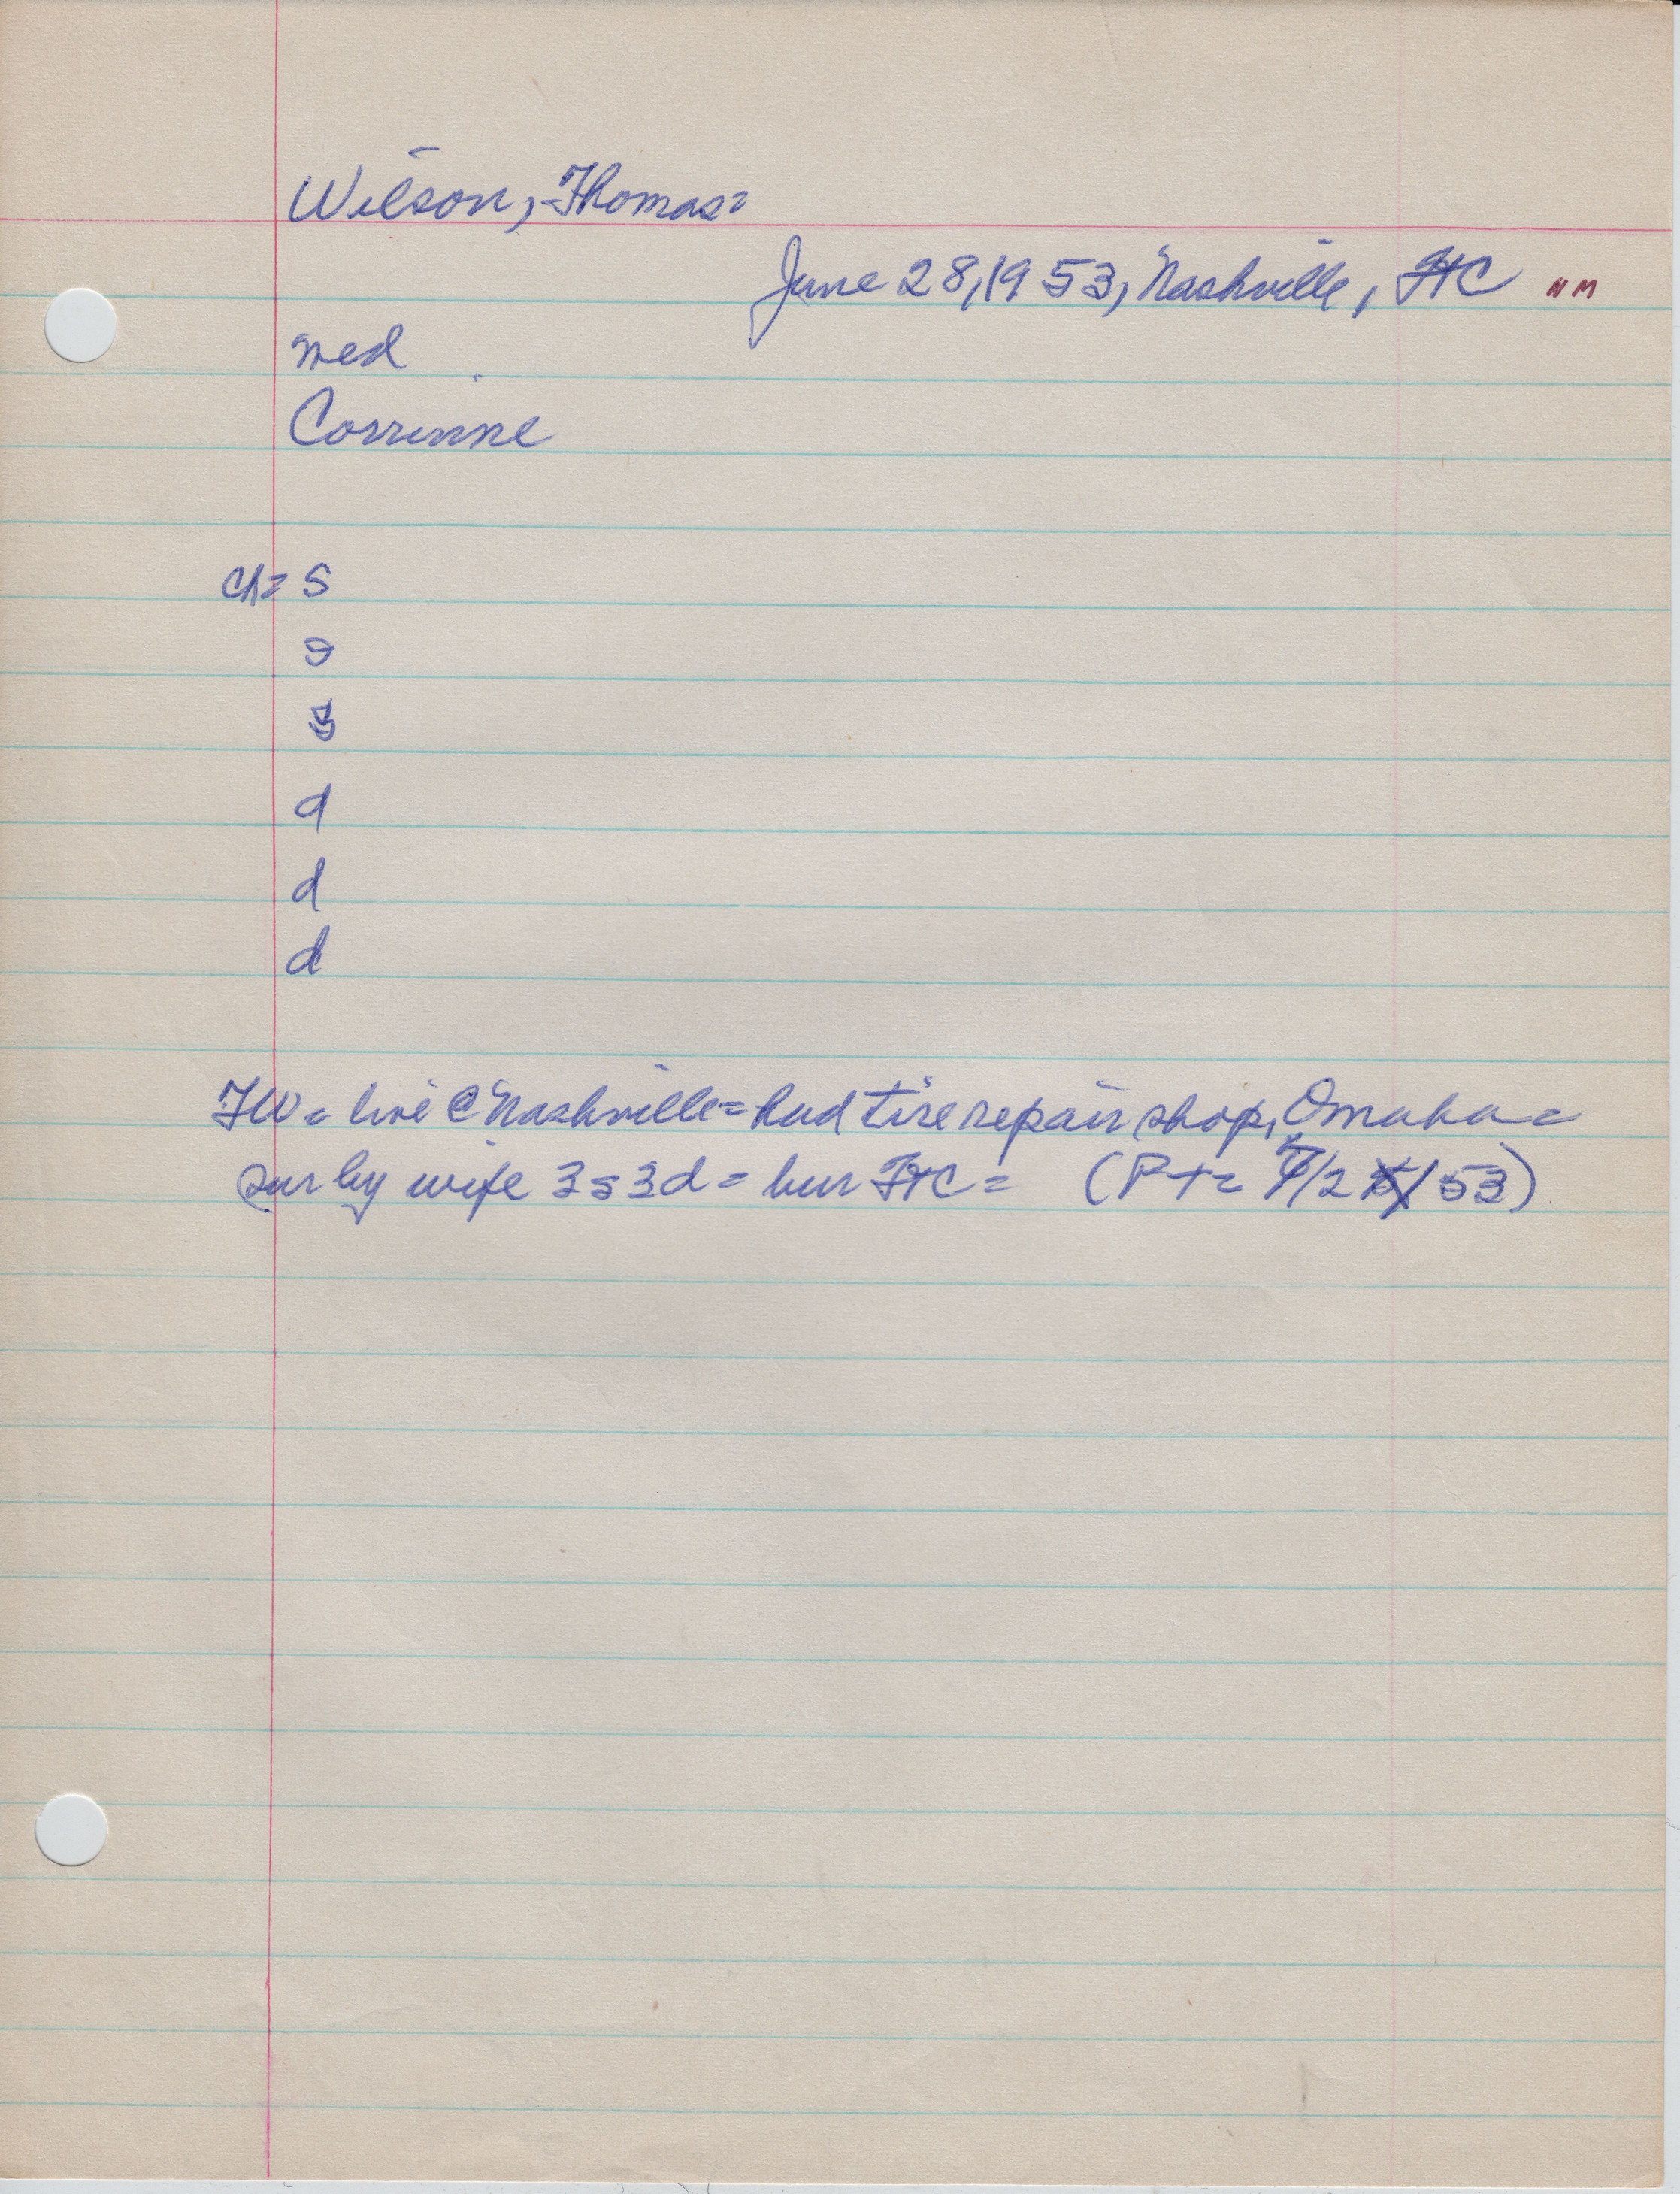 Wilson, Thomas=
June 28, 1953, Nashville, FtC NM
med
Corrinne
ch= s
s
s
d
d
d
TW= live @ Nashville= had tire repair shop, Omaha=
sur by wife 3s 3d= bur FtC= (P+= 7/2/53)